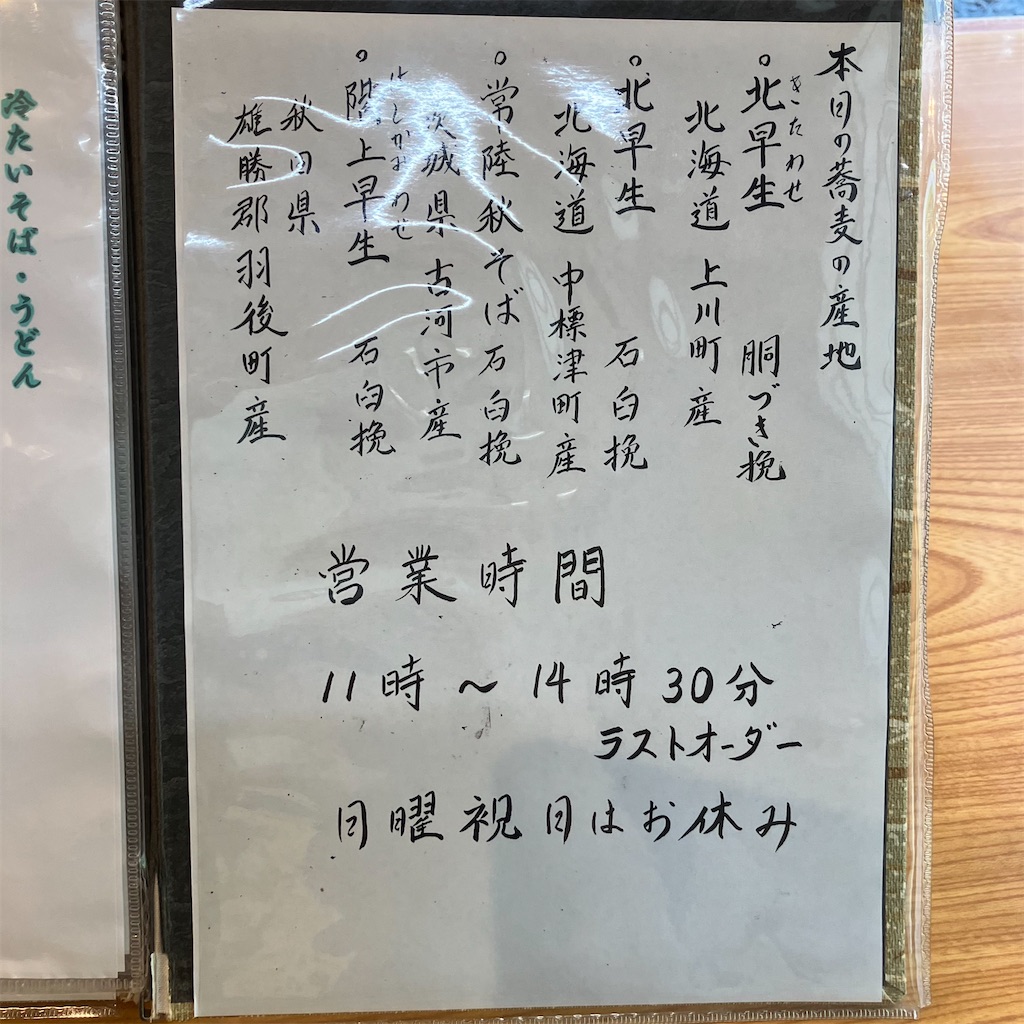 本日の蕎麦の産地
きたわせ
。北早生 胴づき挽
北海道 上川町産
。北早生 石臼挽
北海道 中標津町産
。常陸秋そば 石臼挽
茨城県 古河市産
はしかみわせ
。階上早生 石臼挽
秋田県
雄勝郡羽後町産
営業時間
11時～14時30分
ラストオーダー
日曜祝日はお休み
冷たいそば・うどん